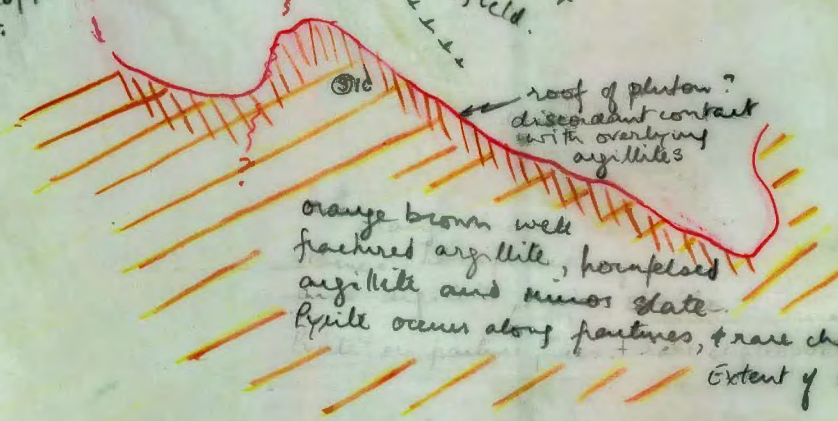 field.
roof of pluton?
discordant contact
with overlying
argillites
?
orange brown well
fractured argillite, hornfelsed
argillite and minor slate
Pyrite occurs along fractures, & rare ch
Extent of